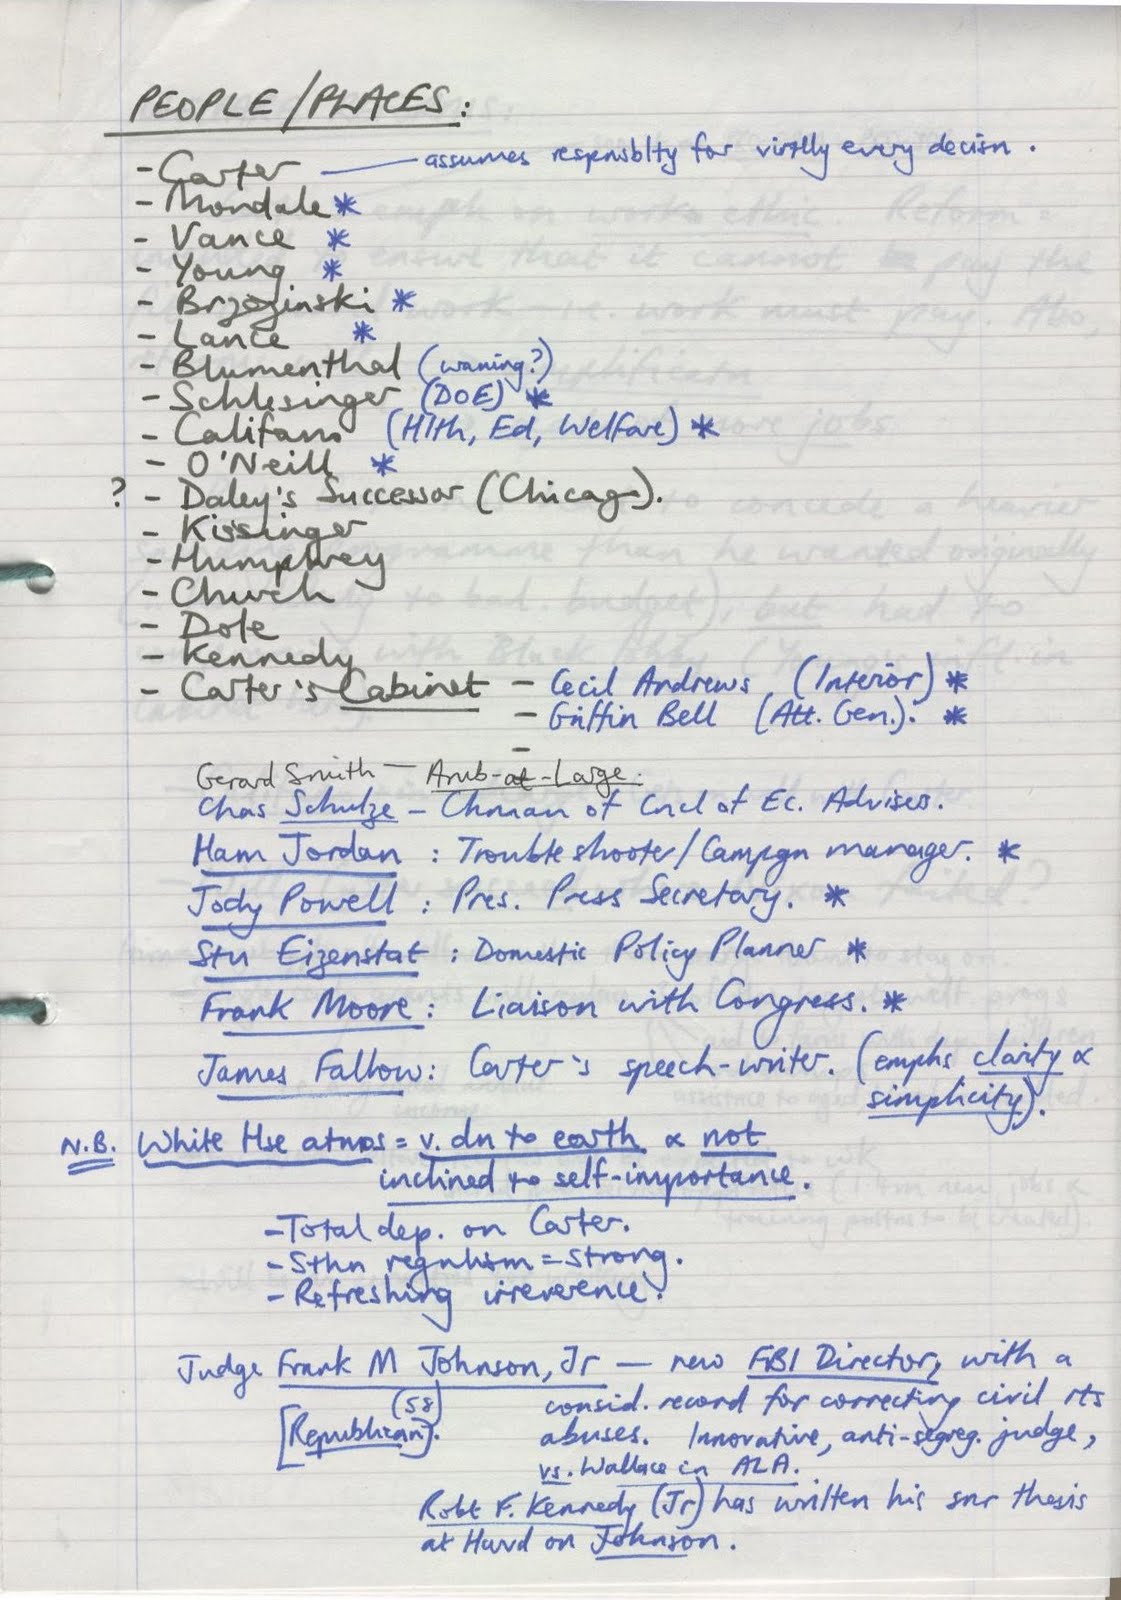 PEOPLE/PLACES:
- Carter — assumes responsblty for virtlly every decisn.
- Mondale *
- Vance *
- Young *
- Brzezinski *
- Lance *
- Blumenthal (waning?)
- Schlesinger (DOE) *
- Califano (Hlth, Ed, Welfare) *
- O'Neill *
? - Daley's Successor (Chicago).
- Kissinger
- Humphrey
- Church
- Dole
- Kennedy
- Carter's Cabinet - Cecil Andrews (Interior) *
- Griffin Bell (Att. Gen.). *
-
Gerard Smith — Amb-at-Large.
Chas Schulze — Chman of Cncl of Ec. Advisers.
Ham Jordan : Troubleshooter/Campgn manager. *
Jody Powell : Pres. Press Secretary. *
Stu Eizenstat : Domestic Policy Planner *
Frank Moore : Liaison with Congress. *
James Fallow: Carter's speech-writer. (emphs clarity &
simplicity).
N.B. White Hse atmos = v. dn to earth & not
inclined to self-importance.
- Total dep. on Carter.
- Sthn regnlism = strong.
- Refreshing irreverence.
Judge Frank M Johnson, Jr — new FBI Director, with a
(58) consid. record for correcting civil rts
[Republican]. abuses. Innovative, anti-segreg. judge,
vs. Wallace in ALA.
Robt F. Kennedy (Jr) has written his snr thesis
at Harvd on Johnson.